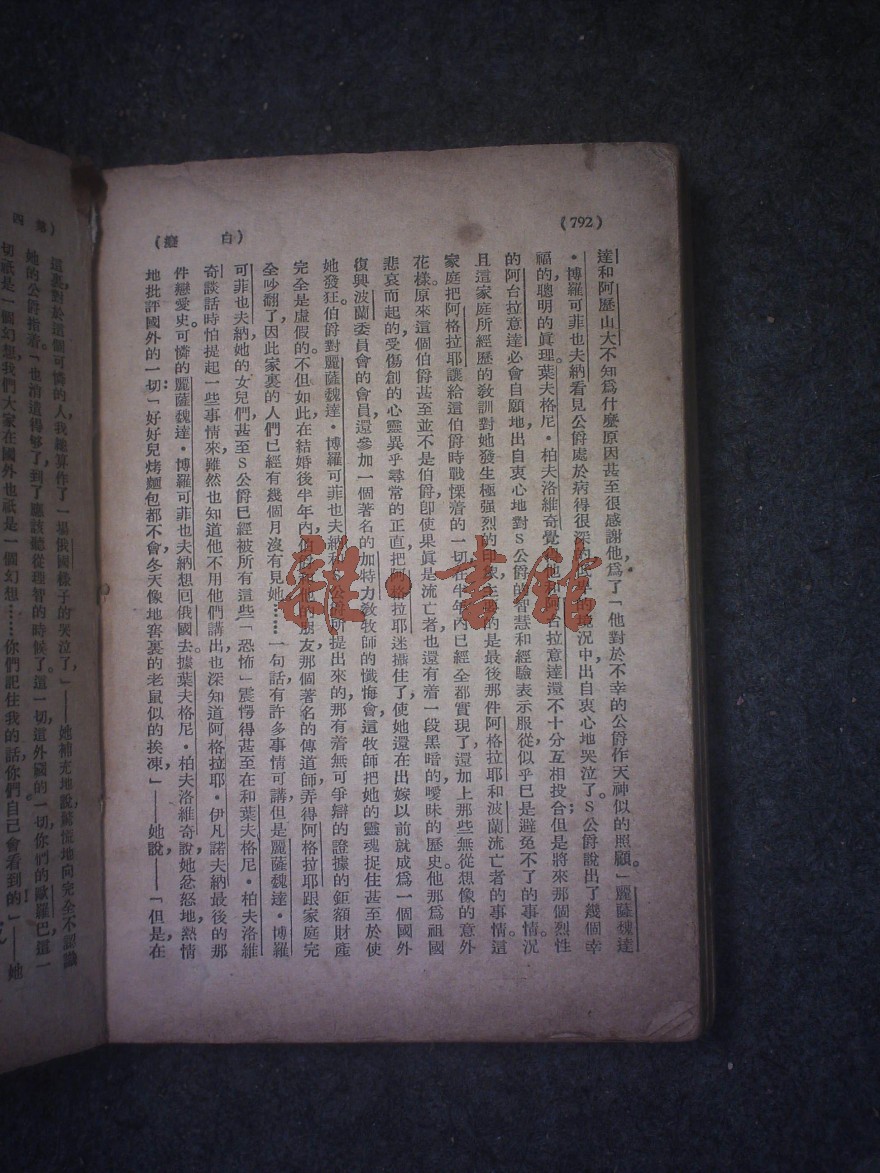 (792)
(白癡)
達和阿歷山大不知爲什麼原因甚至很感謝他,爲了「他對於不幸的公爵作天神似的照顧。」麗薩魏達
·博羅可菲也夫納看見公爵處於病得很深的境況中,出自衷心地哭泣了。S公爵說出了幾個幸
福的,聰明的眞理。葉夫格尼·柏夫洛維奇覺得他和阿台拉意達還不十分互相投合;但是將來那個烈性
的阿台拉意達必會自願地出自衷心地對S公爵的智慧和經驗表示服從,似乎已是避免不了的事情。況
且這家庭所經歷的敎訓對她發生極強烈的印象,主要的是最後那件阿格拉耶和波蘭流亡者的事情。這
家庭把阿格拉耶讓給這伯爵時戰慄着的一切,在半年內已經全都實現了,還加上那些無從想像的意外
花樣。原來這個伯爵甚至並不是伯爵,卽使果眞是流亡者,也還有着一段黑暗的,曖昧的歷史。他那爲祖國
悲哀而起的,受傷創的心靈異乎尋常的正直把阿格拉耶迷攝住了,使她還在出嫁以前就成爲一個國外
復興波蘭委員會的會員,還參加一個著名的加特力敎牧師的懺悔會,這牧師把她的靈魂捉住甚至於使
她發狂。伯爵對麗薩魏達·博羅可菲也夫納和公爵所提出來的那有着無可爭辯的證據的鉅額財產
完全是虛假的。不但如此,在結婚後半年內,伯爵和他的朋友,那個著名的傳道師,弄得阿格拉耶跟家庭完
全吵翻了,因此家裏的人們已經有幾個月沒有見她……一句話,有許多事情可講,但是麗薩魏達·博羅
可菲也夫納,她的女兒們,甚至S公爵已經被所有這些「恐怖」震愕得甚至在和葉夫格尼·柏夫洛維
奇談話時怕提起一些事情來,雖然也知道他不用他們講出,也深知道阿格拉耶·伊凡諾夫納最後的那
件戀愛史。可憐的麗薩魏達·博羅可菲也夫納想囘俄國去,據葉夫格尼·柏夫洛維奇說,她忿怒地,熱情
地批評國外的一切:「好好兒烤麵包都不會,冬天像地窖裏的老鼠似的挨凍,」——她說——「但是在
這裏對於這個可憐的人,我總算作了一場俄國樣子的哭泣了,」——她補充地說,驚慌地向完全不認識
她的公爵指着。「也消遣得够了,到了應該聽從理智的時候了。這一切,這外國的一切,你們的歐羅巴,這一
切祇是一個幻想,我們大家在國外也祇是一個幻想……你們記住我的話,你們自己會看到的」——她
雜·書館